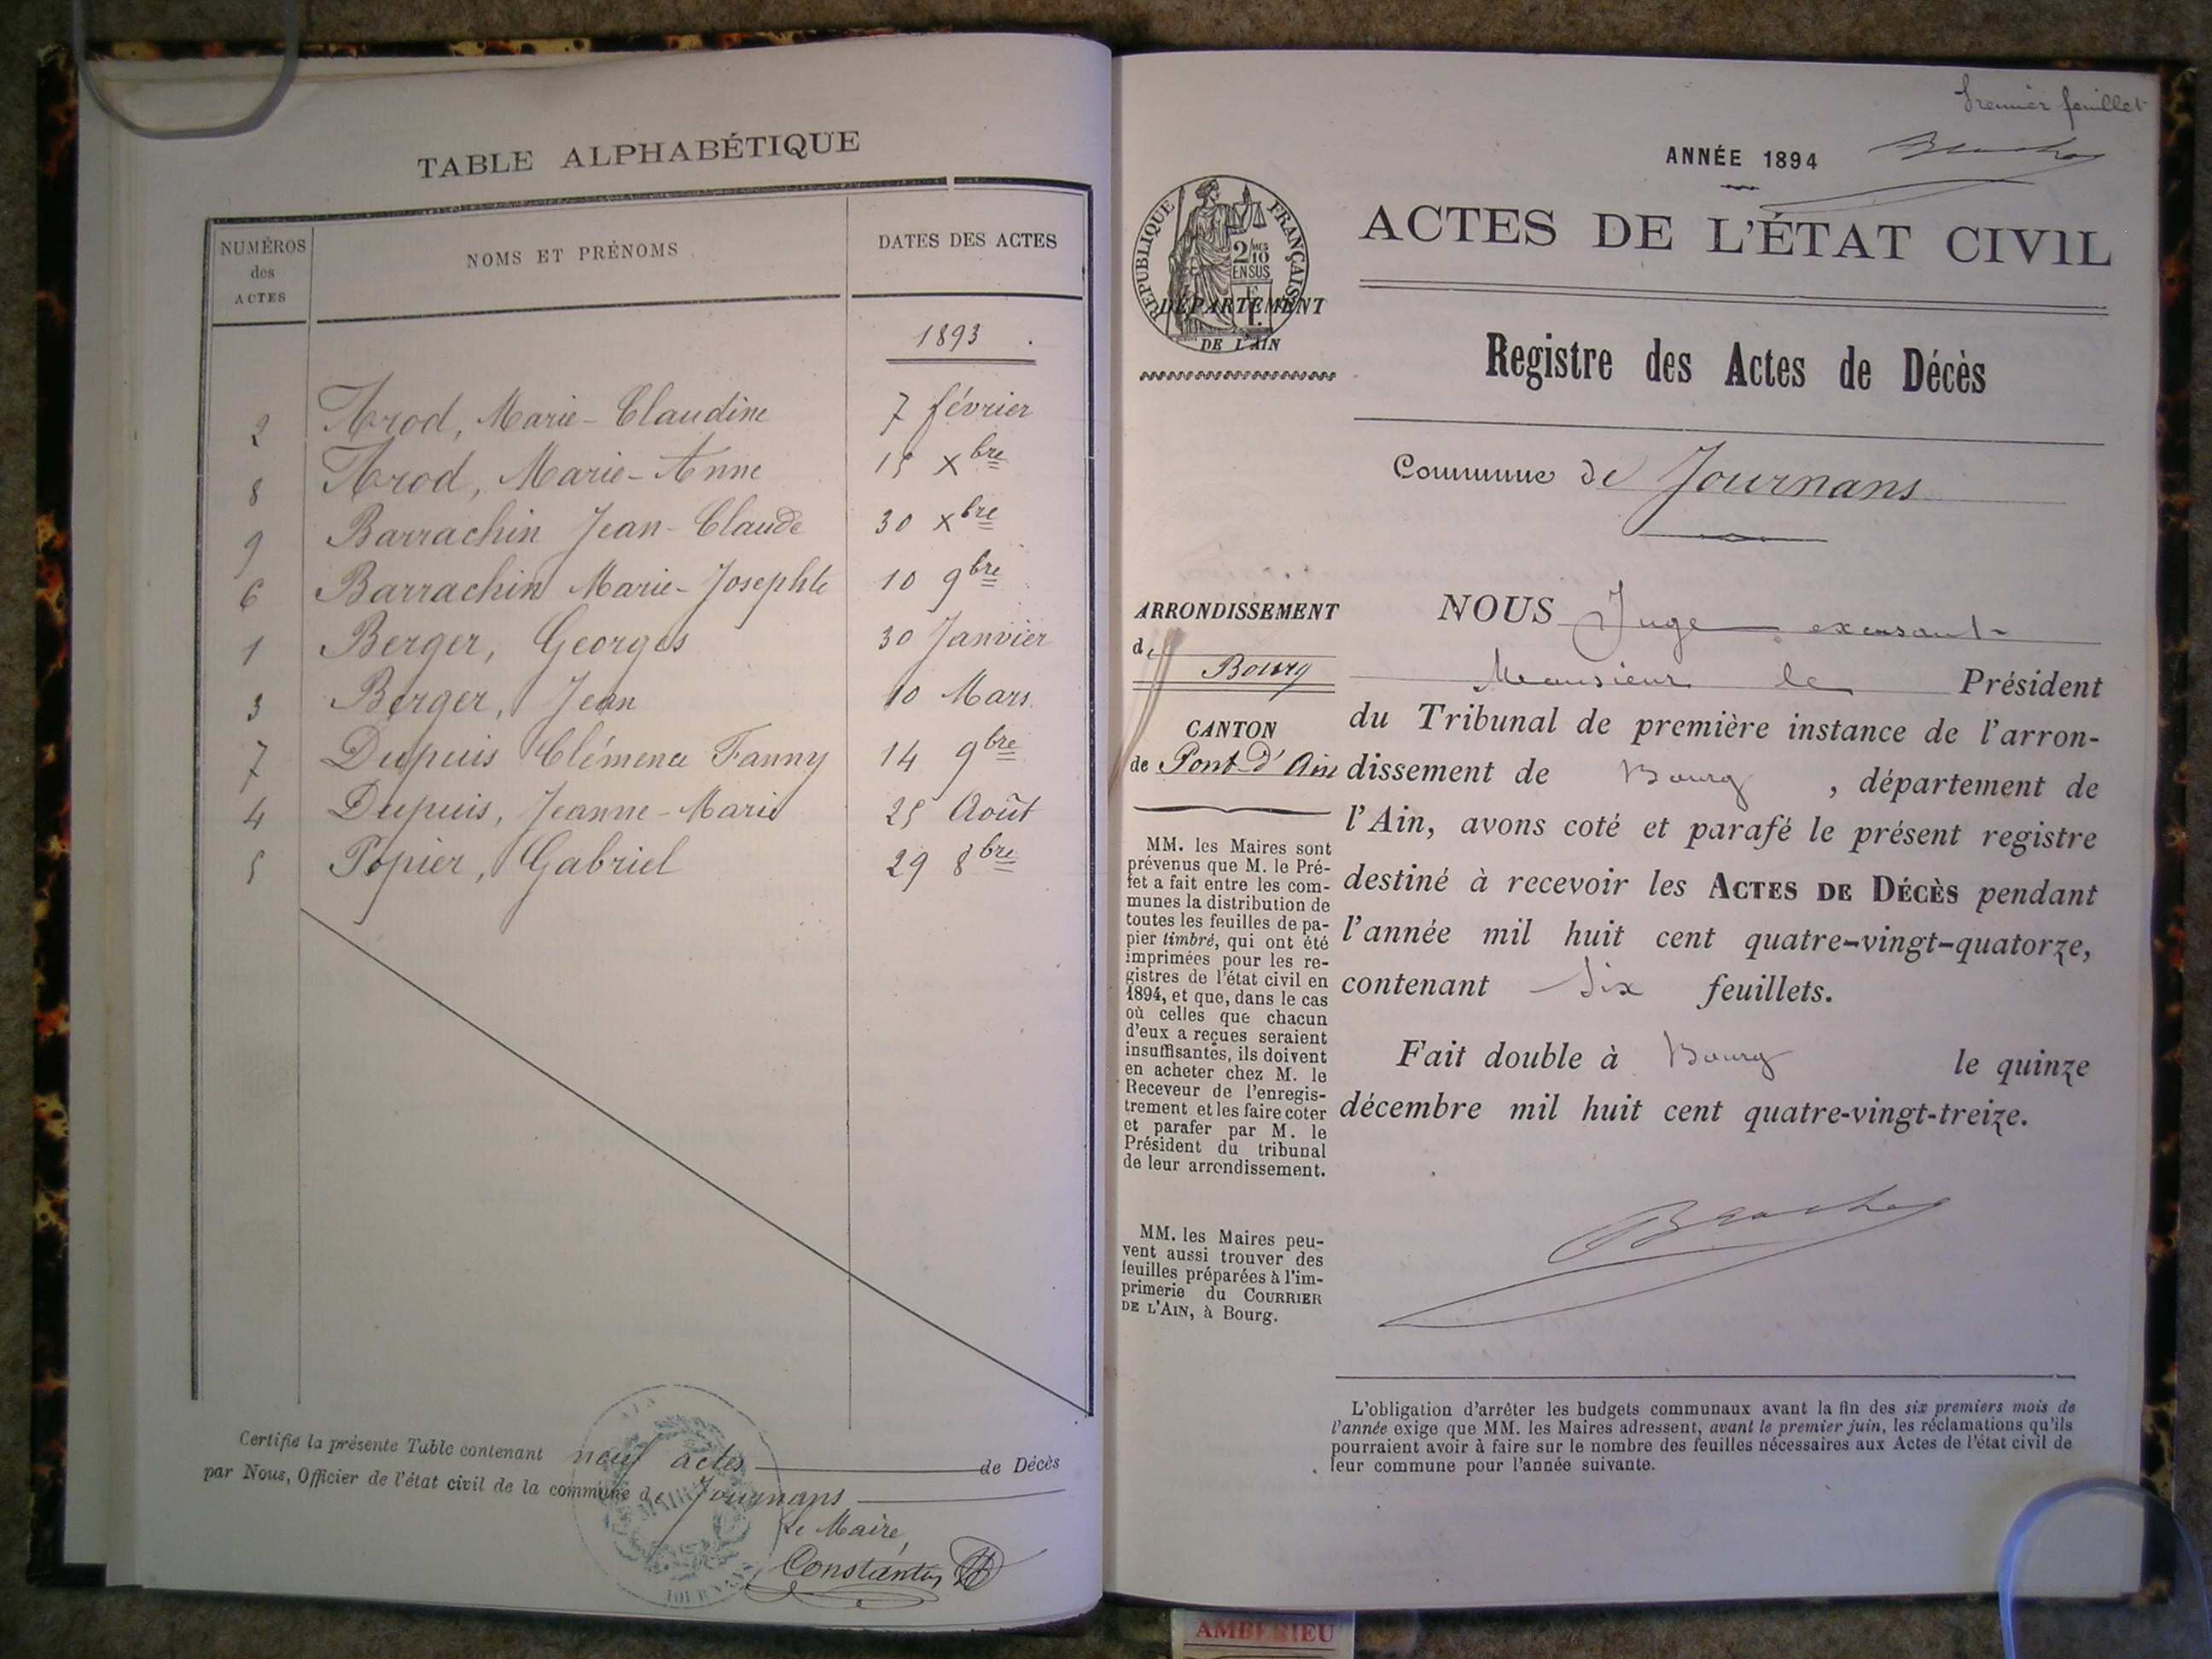 TABLE ALPHABÉTIQUE
NUMÉROS des ACTES
NOMS ET PRÉNOMS
DATES DES ACTES
1893
2 Arod, Marie-Claudine 7 février
8 Arod, Marie-Anne 15 Xbre
9 Barrachin Jean-Claude 30 Xbre
6 Barrachin Marie-Josephte 10 9bre
1 Berger, Georges 30 Janvier
3 Berger, Jean 10 Mars
7 Dupuis Clémence Fanny 14 9bre
4 Dupuis, Jeanne-Marie 25 Août
5 Popier, Gabriel 29 8bre
Certifié la présente Table contenant neuf actes de Décès
par Nous, Officier de l'état civil de la commune de Journans
Le Maire,
Constantin
Premier feuillet
ANNÉE 1894
RÉPUBLIQUE FRANÇAISE
2/10 MES
EN SUS
DÉPARTEMENT
DE L'AIN
ACTES DE L'ÉTAT CIVIL
Registre des Actes de Décès
Commune de Journans
ARRONDISSEMENT
de
Bourg
CANTON
de Pont-d'Ain
MM. les Maires sont
prévenus que M. le Pré-
fet a fait entre les com-
munes la distribution de
toutes les feuilles de pa-
pier timbré, qui ont été
imprimées pour les re-
gistres de l'état civil en
1894, et que, dans le cas
où celles que chacun
d'eux a reçues seraient
insuffisantes, ils doivent
en acheter chez M. le
Receveur de l'enregis-
trement et les faire coter
et parafer par M. le
Président du tribunal
de leur arrondissement.
MM. les Maires peu-
vent aussi trouver des
feuilles préparées à l'im-
primerie du COURRIER
DE L'AIN, à Bourg.
NOUS Juge excusant
Monsieur le Président
du Tribunal de première instance de l'arron-
dissement de Bourg, département de
l'Ain, avons coté et parafé le présent registre
destiné à recevoir les ACTES DE DÉCÈS pendant
l'année mil huit cent quatre-vingt-quatorze,
contenant Six feuillets.
Fait double à Bourg le quinze
décembre mil huit cent quatre-vingt-treize.
L'obligation d'arrêter les budgets communaux avant la fin des six premiers mois de
l'année exige que MM. les Maires adressent, avant le premier juin, les réclamations qu'ils
pourraient avoir à faire sur le nombre des feuilles nécessaires aux Actes de l'état civil de
leur commune pour l'année suivante.
AMBERIEU